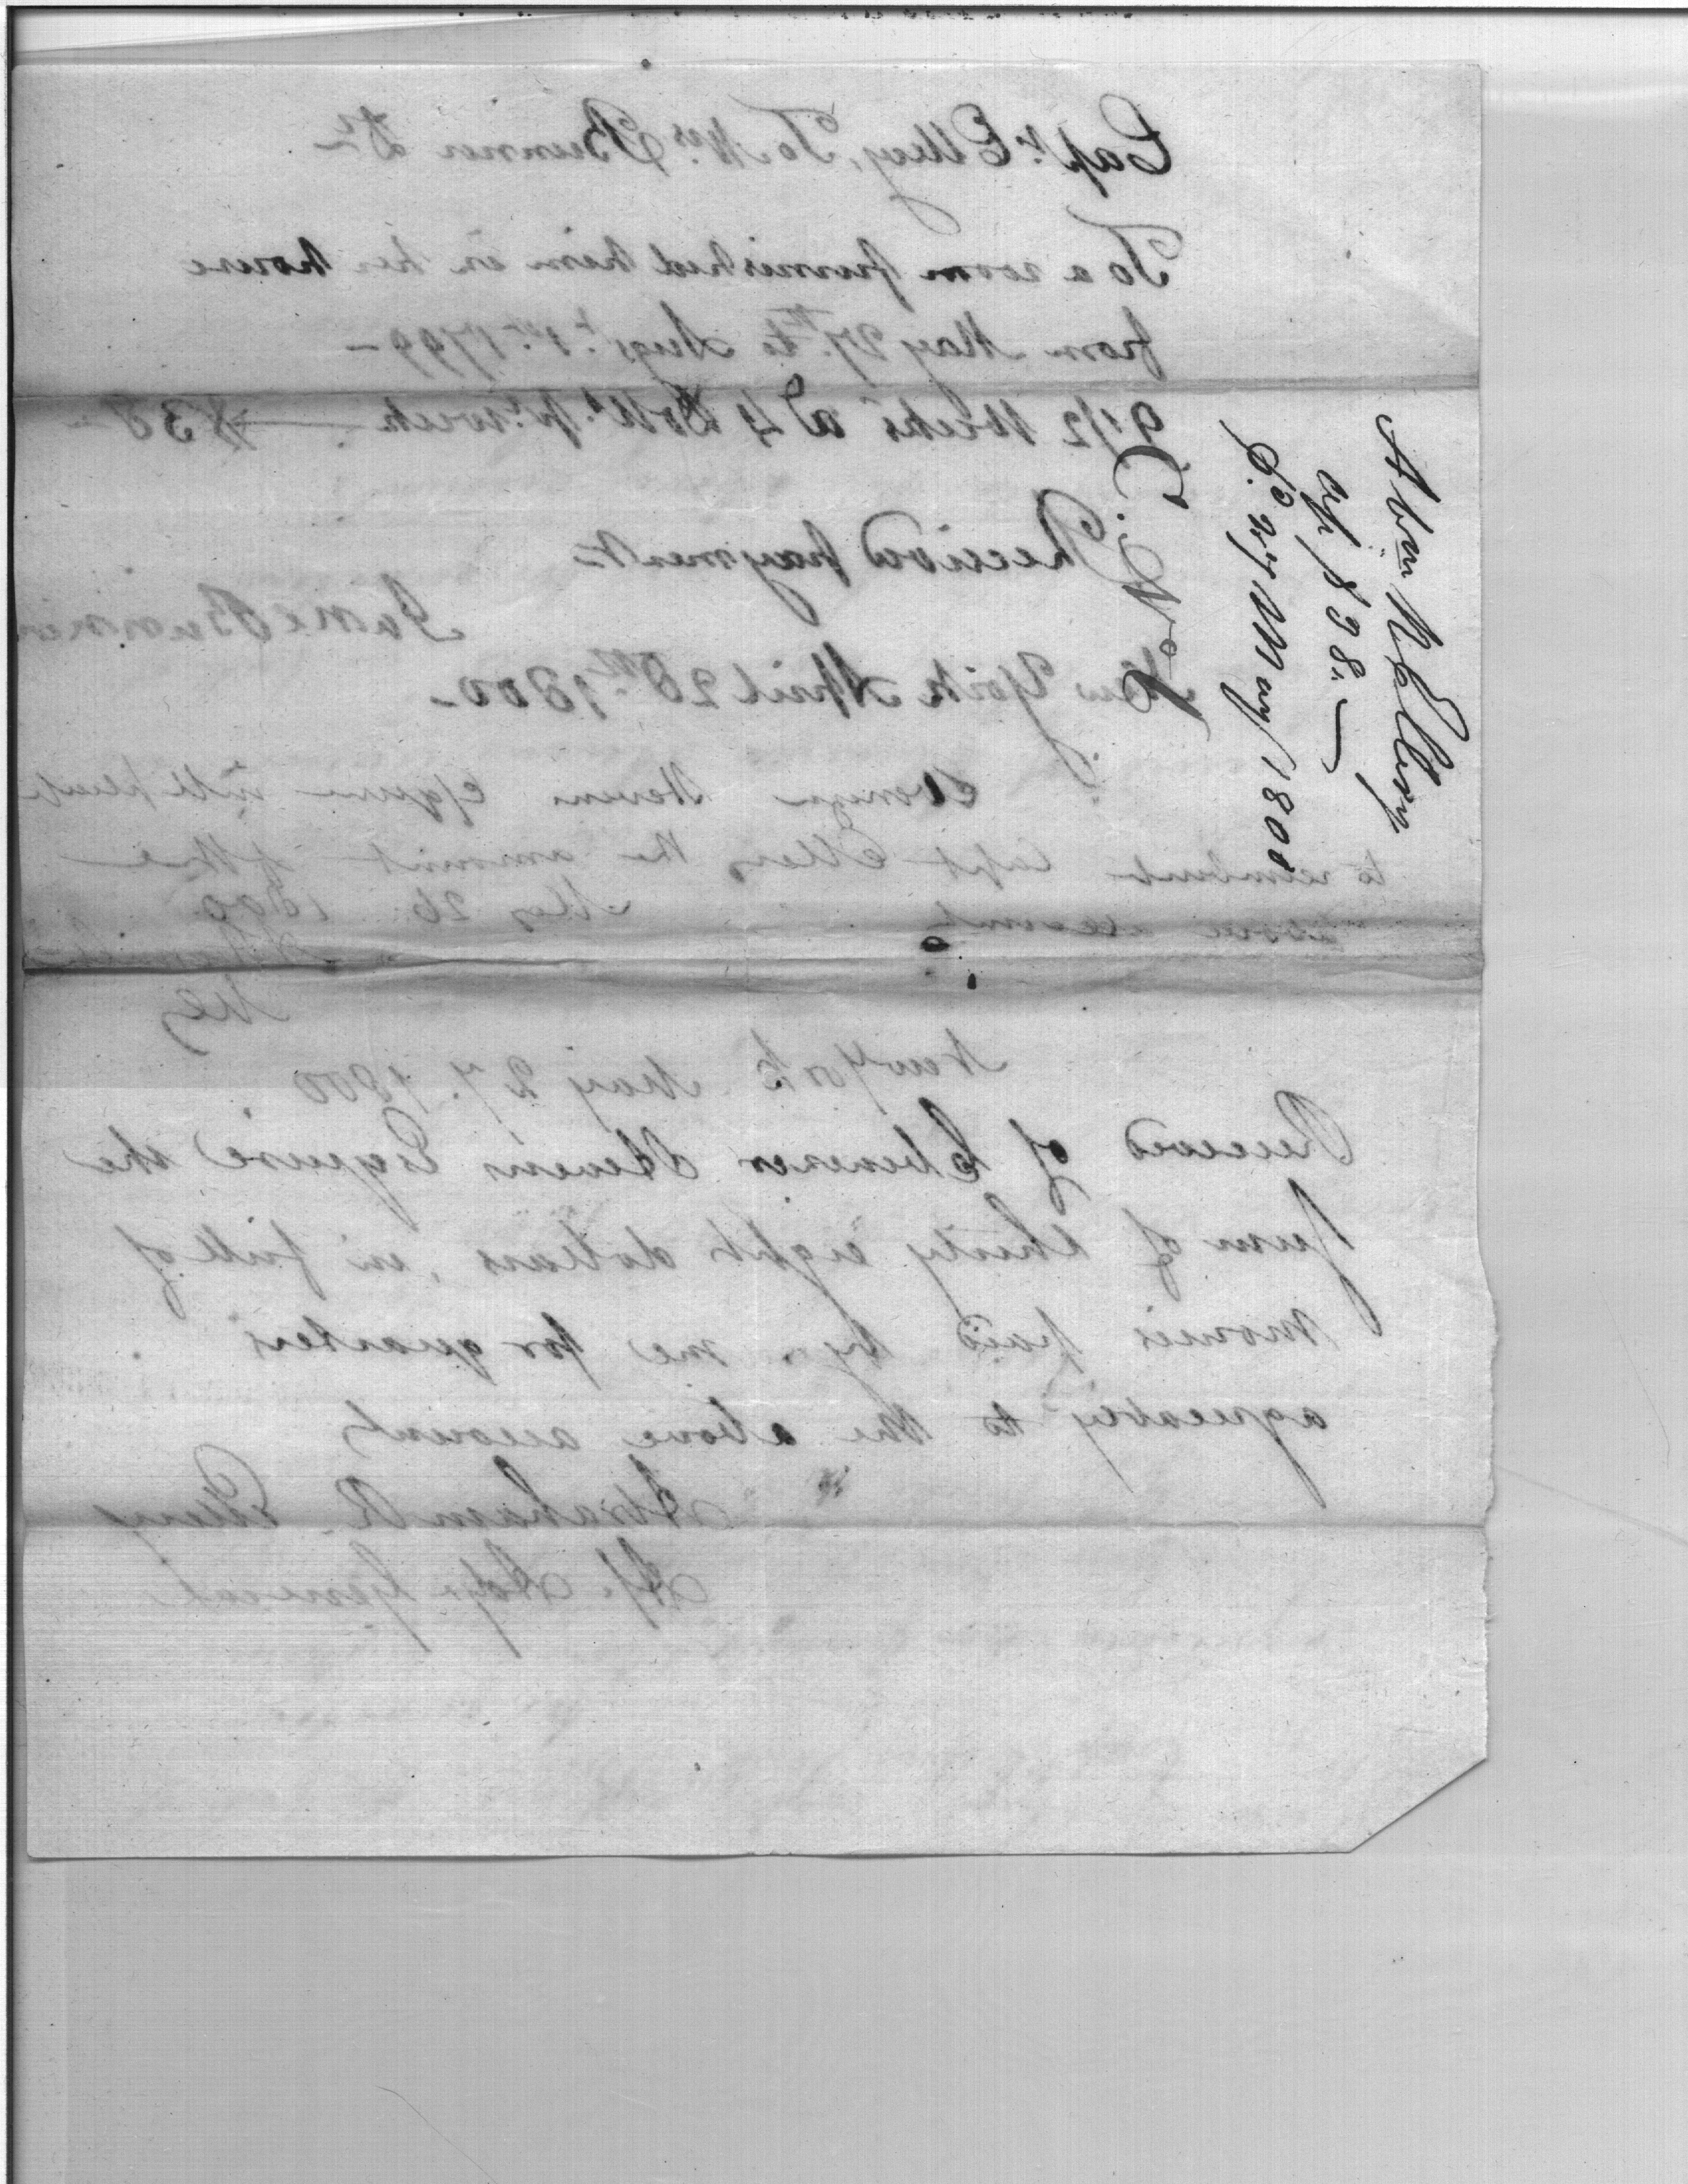 Capt. Ellery, To Mrs. Bremner Dr.
To a room furnished him in her house
from May 27th. to Augst. 1st. 1799 –
9 1/2 Weeks at 4 Dolls. pr. week — $38
Received payment
Jane Bremner
New York April 28th. 1800 –
Stevens Esquire will please
to reimburse Capt Ellery the amount of the
above account May 26. 1800
New York May 27. 1800
Received of Ebenezer Stevens Esquire the
sum of thirty eight dollars, in full of
monies paid by me for quarters
agreeably to the above account
Abraham R. Ellery
As. Adj. General
Abm R Ellery
$38..
27 May 1800
C. No. 1